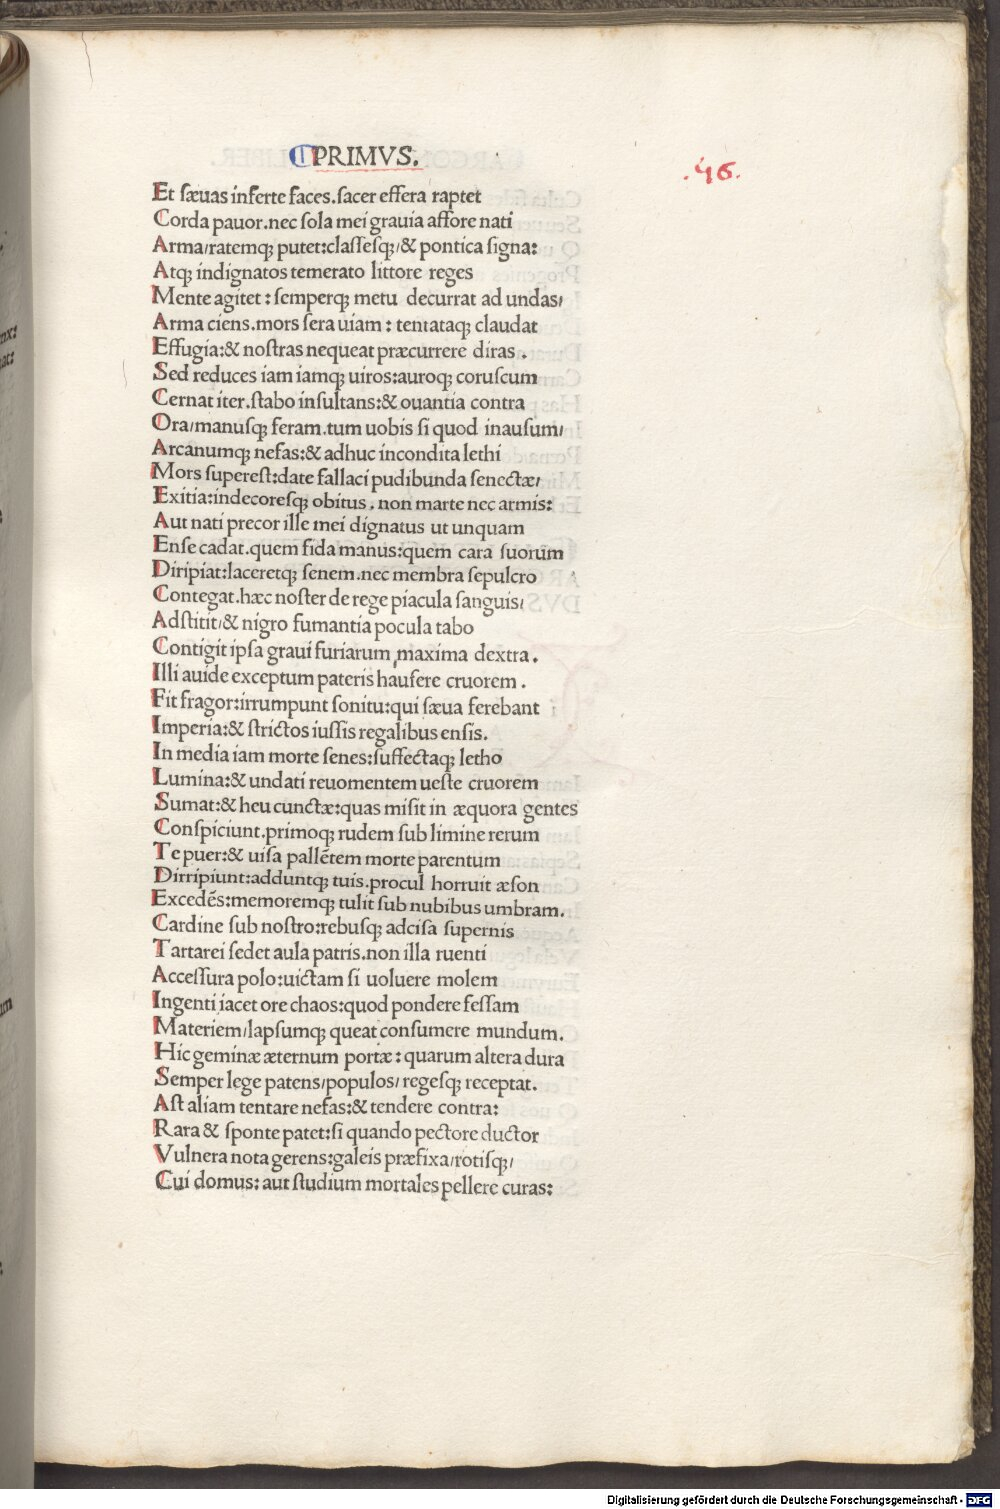 PRIMVS.
.46.
Et sæuas inferte faces.sacer effera raptet
Corda pauor.nec sola mei grauia affore nati
Arma/ratemq; putet:classesq;/& pontica signa:
Atq; indignatos temerato littore reges
Mente agitet: semperq; metu decurrat ad undas/
Arma ciens.mors sera uiam: tentataq; claudat
Effugia:& nostras nequeat præcurrere diras.
Sed reduces iam iamq; uiros:auroq; coruscum
Cernat iter.stabo insultans:& ouantia contra
Ora/manusq; feram.tum uobis si quod inausum/
Arcanumq; nefas:& adhuc incondita lethi
Mors superest:date fallaci pudibunda senectæ/
Exitia:indecoresq; obitus. non marte nec armis:
Aut nati precor ille mei dignatus ut unquam
Ense cadat.quem fida manus:quem cara suorum
Diripiat:laceretq; senem.nec membra sepulcro
Contegat.hæc noster de rege piacula sanguis/
Adstitit/& nigro fumantia pocula tabo
Contigit ipsa graui furiarum maxima dextra.
Illi auide exceptum pateris hausere cruorem.
Fit fragor:irrumpunt sonitu:qui sæua ferebant
Imperia:& strictos iussis regalibus ensis.
In media iam morte senes:suffectaq; letho
Lumina:& undati reuomentem ueste cruorem
Sumat:& heu cunctæ:quas misit in æquora gentes
Conspiciunt.primoq; rudem sub limine rerum
Te puer:& uisa pallētem morte parentum
Dirripiunt:adduntq; tuis.procul horruit æson
Excedēs:memoremq; tulit sub nubibus umbram.
Cardine sub nostro:rebusq; adcisa supernis
Tartarei sedet aula patris.non illa ruenti
Accessura polo:uictam si uoluere molem
Ingenti iacet ore chaos:quod pondere fessam
Materiem/lapsumq; queat consumere mundum.
Hic geminæ æternum portæ: quarum altera dura
Semper lege patens/populos/regesq; receptat.
Ast aliam tentare nefas:& tendere contra:
Rara & sponte patet:si quando pectore ductor
Vulnera nota gerens:galeis præfixa/rotisq;/
Cui domus: aut studium mortales pellere curas:
Digitalisierung gefördert durch die Deutsche Forschungsgemeinschaft - DFG